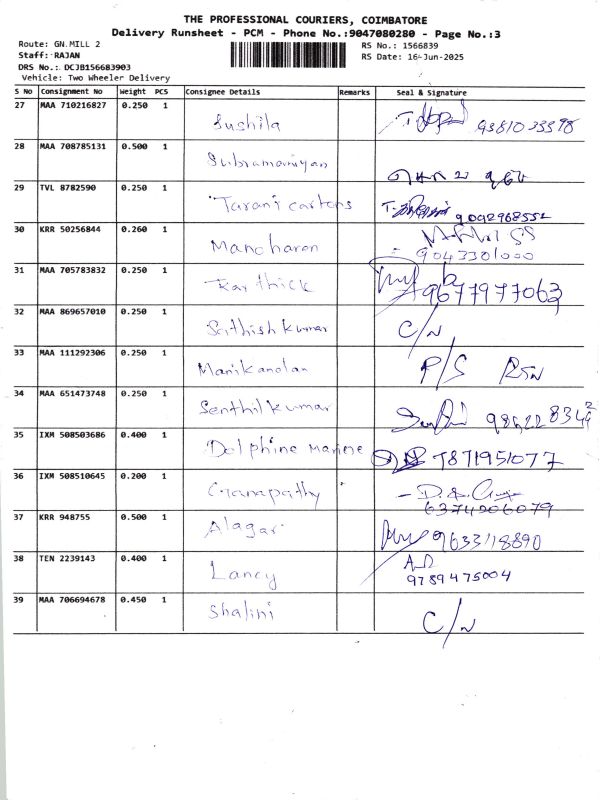 THE PROFESSIONAL COURIERS, COIMBATORE
Delivery Runsheet - PCM - Phone No.:9047080280 - Page No.:3
Route: GN.MILL 2
Staff: RAJAN
DRS No.: DCJB156683903
Vehicle: Two Wheeler Delivery
RS No.: 1566839
RS Date: 16-Jun-2025
S No Consignment No Weight PCS Consignee Details Remarks Seal & Signature
27 MAA 710216827 0.250 1 Sushila 9381033398
28 MAA 708785131 0.500 1 Subramaniyan
29 TVL 8782590 0.250 1 Tarani cartons 9092968552
30 KRR 50256844 0.260 1 Manoharan
9043301000
31 MAA 705783832 0.250 1 Karthick 9677977063
32 MAA 869657010 0.250 1 Sathish kumar C/N
33 MAA 111292306 0.250 1 Manikandan P/S
34 MAA 651473748 0.250 1 Senthil kumar
35 IXM 508503686 0.400 1 Dolphine Marine 7871951077
36 IXM 508510645 0.200 1 Ganapathy
6374206079
37 KRR 948755 0.500 1 Alagar 9633118890
38 TEN 2239143 0.400 1 Lancy
9789475004
39 MAA 706694678 0.450 1 Shalini C/N